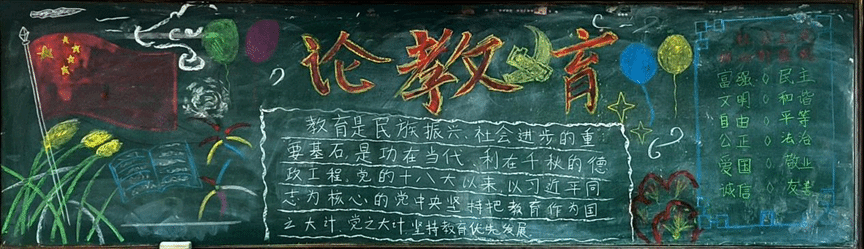 论教育
教育是民族振兴、社会进步的重
要基石,是功在当代、利在千秋的德
政工程。党的十八大以来,以习近平同
志为核心的党中央坚持把教育作为国
之大计、党之大计坚持教育优先发展
富强◇民主
文明◇和谐
自由◇平等
公正◇法治
爱国◇敬业
诚信◇友善